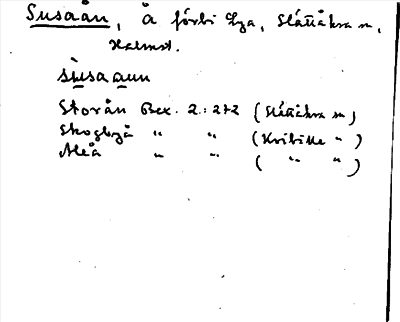 Susaån, Å förbi Lya, Slättåkra sn,
Halmst.
sùsaaun
Storån Bex. 2:272 (Slättåkra sn)
Skogbyå " " (Kvibille ")
Aleå " " ( " " )